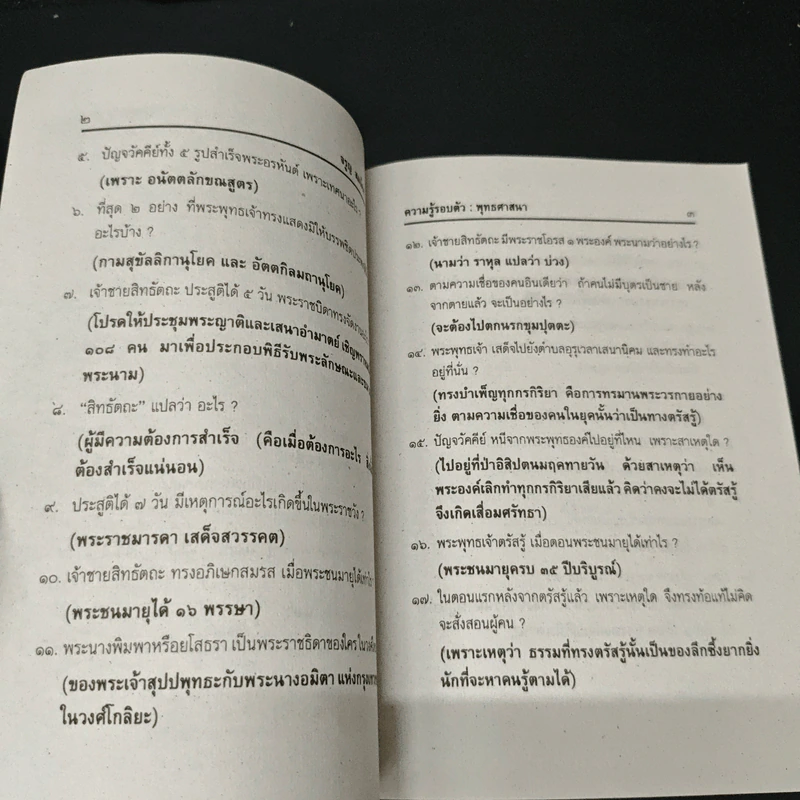 ๒
๕. ปัญจวัคคีย์ทั้ง ๕ รูปสำเร็จพระอรหันต์ เพราะเทศนาอะไร ?
(เพราะ อนัตตลักขณสูตร)
๖. ที่สุด ๒ อย่าง ที่พระพุทธเจ้าทรงแสดงมิให้บรรพชิต
อะไรบ้าง ?
(กามสุขัลลิกานุโยค และ อัตตกิลมถานุโยค)
๗. เจ้าชายสิทธัตถะ ประสูติได้ ๕ วัน พระราชบิดาทรงจัดงาน
(โปรดให้ประชุมพระญาติและเสนาอำมาตย์ เชิญ
๑๐๘ คน มาเพื่อประกอบพิธีรับพระลักษณะและ
พระนาม)
๘. “สิทธัตถะ” แปลว่า อะไร ?
(ผู้มีความต้องการสำเร็จ (คือเมื่อต้องการอะไร
ต้องสำเร็จแน่นอน)
๙. ประสูติได้ ๗ วัน มีเหตุการณ์อะไรเกิดขึ้นในพระราชวัง ?
(พระราชมารดา เสด็จสวรรคต)
๑๐. เจ้าชายสิทธัตถะ ทรงอภิเษกสมรส เมื่อพระชนมายุได้
(พระชนมายุได้ ๑๖ พรรษา)
๑๑. พระนางพิมพาหรือยโสธรา เป็นพระราชธิดาของใคร
(ของพระเจ้าสุปปพุทธะกับพระนางอมิตา แห่งกรุง
ในวงศ์โกลิยะ)
ความรู้รอบตัว : พุทธศาสนา
๓
๑๒. เจ้าชายสิทธัตถะ มีพระราชโอรส ๑ พระองค์ พระนามว่าอย่างไร ?
(นามว่า ราหุล แปลว่า บ่วง)
๑๓. ตามความเชื่อของคนอินเดียว่า ถ้าคนไม่มีบุตรเป็นชาย หลัง
จากตายแล้ว จะเป็นอย่างไร ?
(จะต้องไปตกนรกขุมปุตตะ)
๑๔. พระพุทธเจ้า เสด็จไปยังตำบลอุรุเวลาเสนานิคม และทรงทำอะไร
อยู่ที่นั่น ?
(ทรงบำเพ็ญทุกกรกิริยา คือการทรมานพระวรกายอย่าง
ยิ่ง ตามความเชื่อของคนในยุคนั้นว่าเป็นทางตรัสรู้)
๑๕. ปัญจวัคคีย์ หนีจากพระพุทธองค์ไปอยู่ที่ไหน เพราะสาเหตุใด ?
(ไปอยู่ที่ป่าอิสิปตนมฤคทายวัน ด้วยสาเหตุว่า เห็น
พระองค์เลิกทำทุกกรกิริยาเสียแล้ว คิดว่าคงจะไม่ได้ตรัสรู้
จึงเกิดเสื่อมศรัทธา)
๑๖. พระพุทธเจ้าตรัสรู้ เมื่อตอนพระชนมายุได้เท่าไร ?
(พระชนมายุครบ ๓๕ ปีบริบูรณ์)
๑๗. ในตอนแรกหลังจากตรัสรู้แล้ว เพราะเหตุใด จึงทรงท้อแท้ไม่คิด
จะสั่งสอนผู้คน ?
(เพราะเหตุว่า ธรรมที่ทรงตรัสรู้นั้นเป็นของลึกซึ้งยากยิ่ง
นักที่จะหาคนรู้ตามได้)